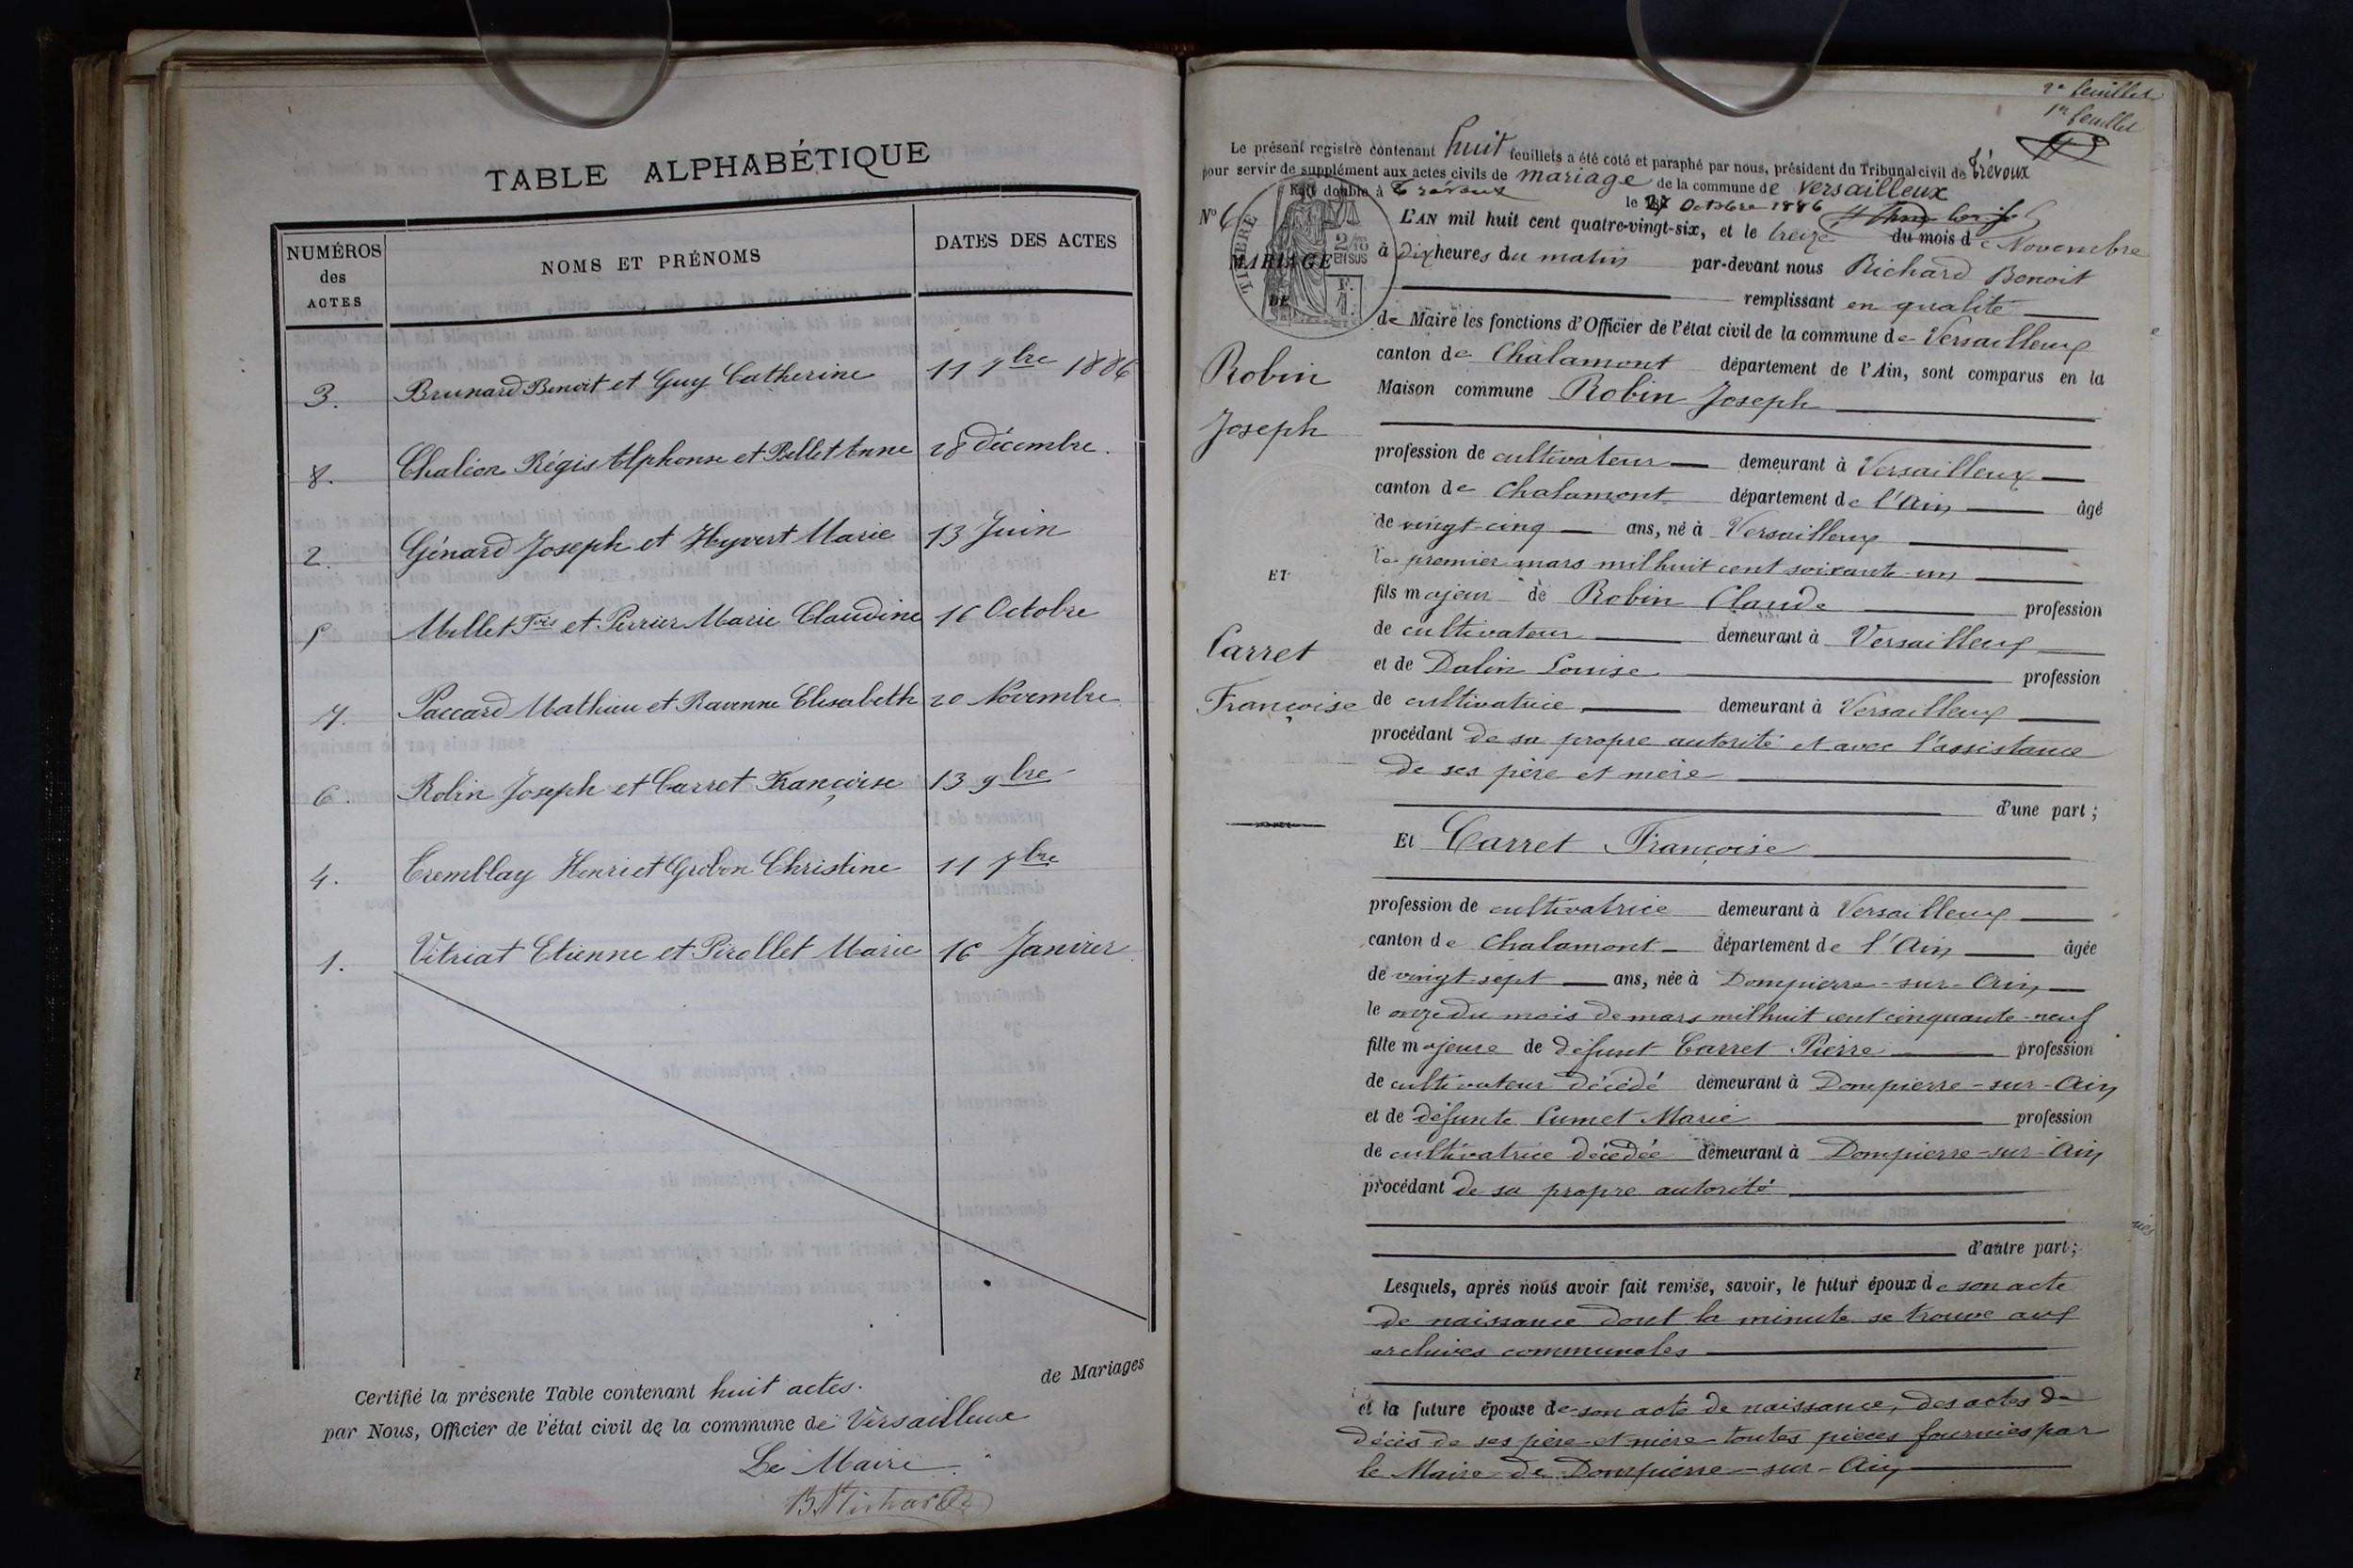 TABLE ALPHABÉTIQUE
NUMÉROS des ACTES
NOMS ET PRÉNOMS
DATES DES ACTES
3. Brunard Benoit et Guy Catherine 11 7bre 1886
8. Chaléon Régis Alphonse et Bellet Anne 28 décembre.
2. Génard Joseph et Hyvert Marie 13 Juin
5 Millet Fois et Perrier Marie Claudine 16 Octobre
7. Paccard Mathieu et Ravenne Elisabeth 20 Novembre
6. Robin Joseph et Carret Françoise 13 9bre
4. Tremblay Henri et Grobon Christine 11 7bre
1. Vitriat Etienne et Pirollet Marie 16 Janvier
de Mariages
Certifié la présente Table contenant huit actes.
par Nous, Officier de l'état civil de la commune de Versailleux
Le Maire.
B. Richard
2e feuillet
1er feuillet
Le présent registre contenant huit feuillets a été coté et paraphé par nous, président du Tribunal civil de Trévoux
pour servir de supplément aux actes civils de mariage de la commune de Versailleux
Fait double à Trévoux le 27 Octobre 1886
No 6
TIMBRE
2/10 EN SUS
MARIAGE
DE
Robin
Joseph
ET
Carret
Françoise
L'AN mil huit cent quatre-vingt-six, et le treize du mois de Novembre
à dix heures du matin par-devant nous Richard Benoit
remplissant en qualité
de Maire les fonctions d'Officier de l'état civil de la commune de Versailleux
canton de Chalamont département de l'Ain, sont comparus en la
Maison commune Robin Joseph
profession de cultivateur demeurant à Versailleux
canton de Chalamont département de l'Ain âgé
de vingt-cinq ans, né à Versailleux
le premier mars mil huit cent soixante-un
fils majeur de Robin Claude profession
de cultivateur demeurant à Versailleux
et de Dalin Louise profession
de cultivatrice demeurant à Versailleux
procédant de sa propre autorité et avec l'assistance
de ses père et mère
d'une part;
Et Carret Françoise
profession de cultivatrice demeurant à Versailleux
canton de Chalamont département de l'Ain âgée
de vingt-sept ans, née à Dompierre-sur-Ain
le onze du mois de mars mil huit cent cinquante-neuf
fille majeure de défunt Carret Pierre profession
de cultivateur décédé demeurant à Dompierre-sur-Ain
et de défunte Cumet Marie profession
de cultivatrice décédée demeurant à Dompierre-sur-Ain
procédant de sa propre autorité
d'autre part;
Lesquels, après nous avoir fait remise, savoir, le futur époux de son acte
de naissance dont la minute se trouve aux
archives communales
et la future épouse de son acte de naissance, des actes de
décès de ses père et mère toutes pièces fournies par
le Maire de Dompierre-sur-Ain